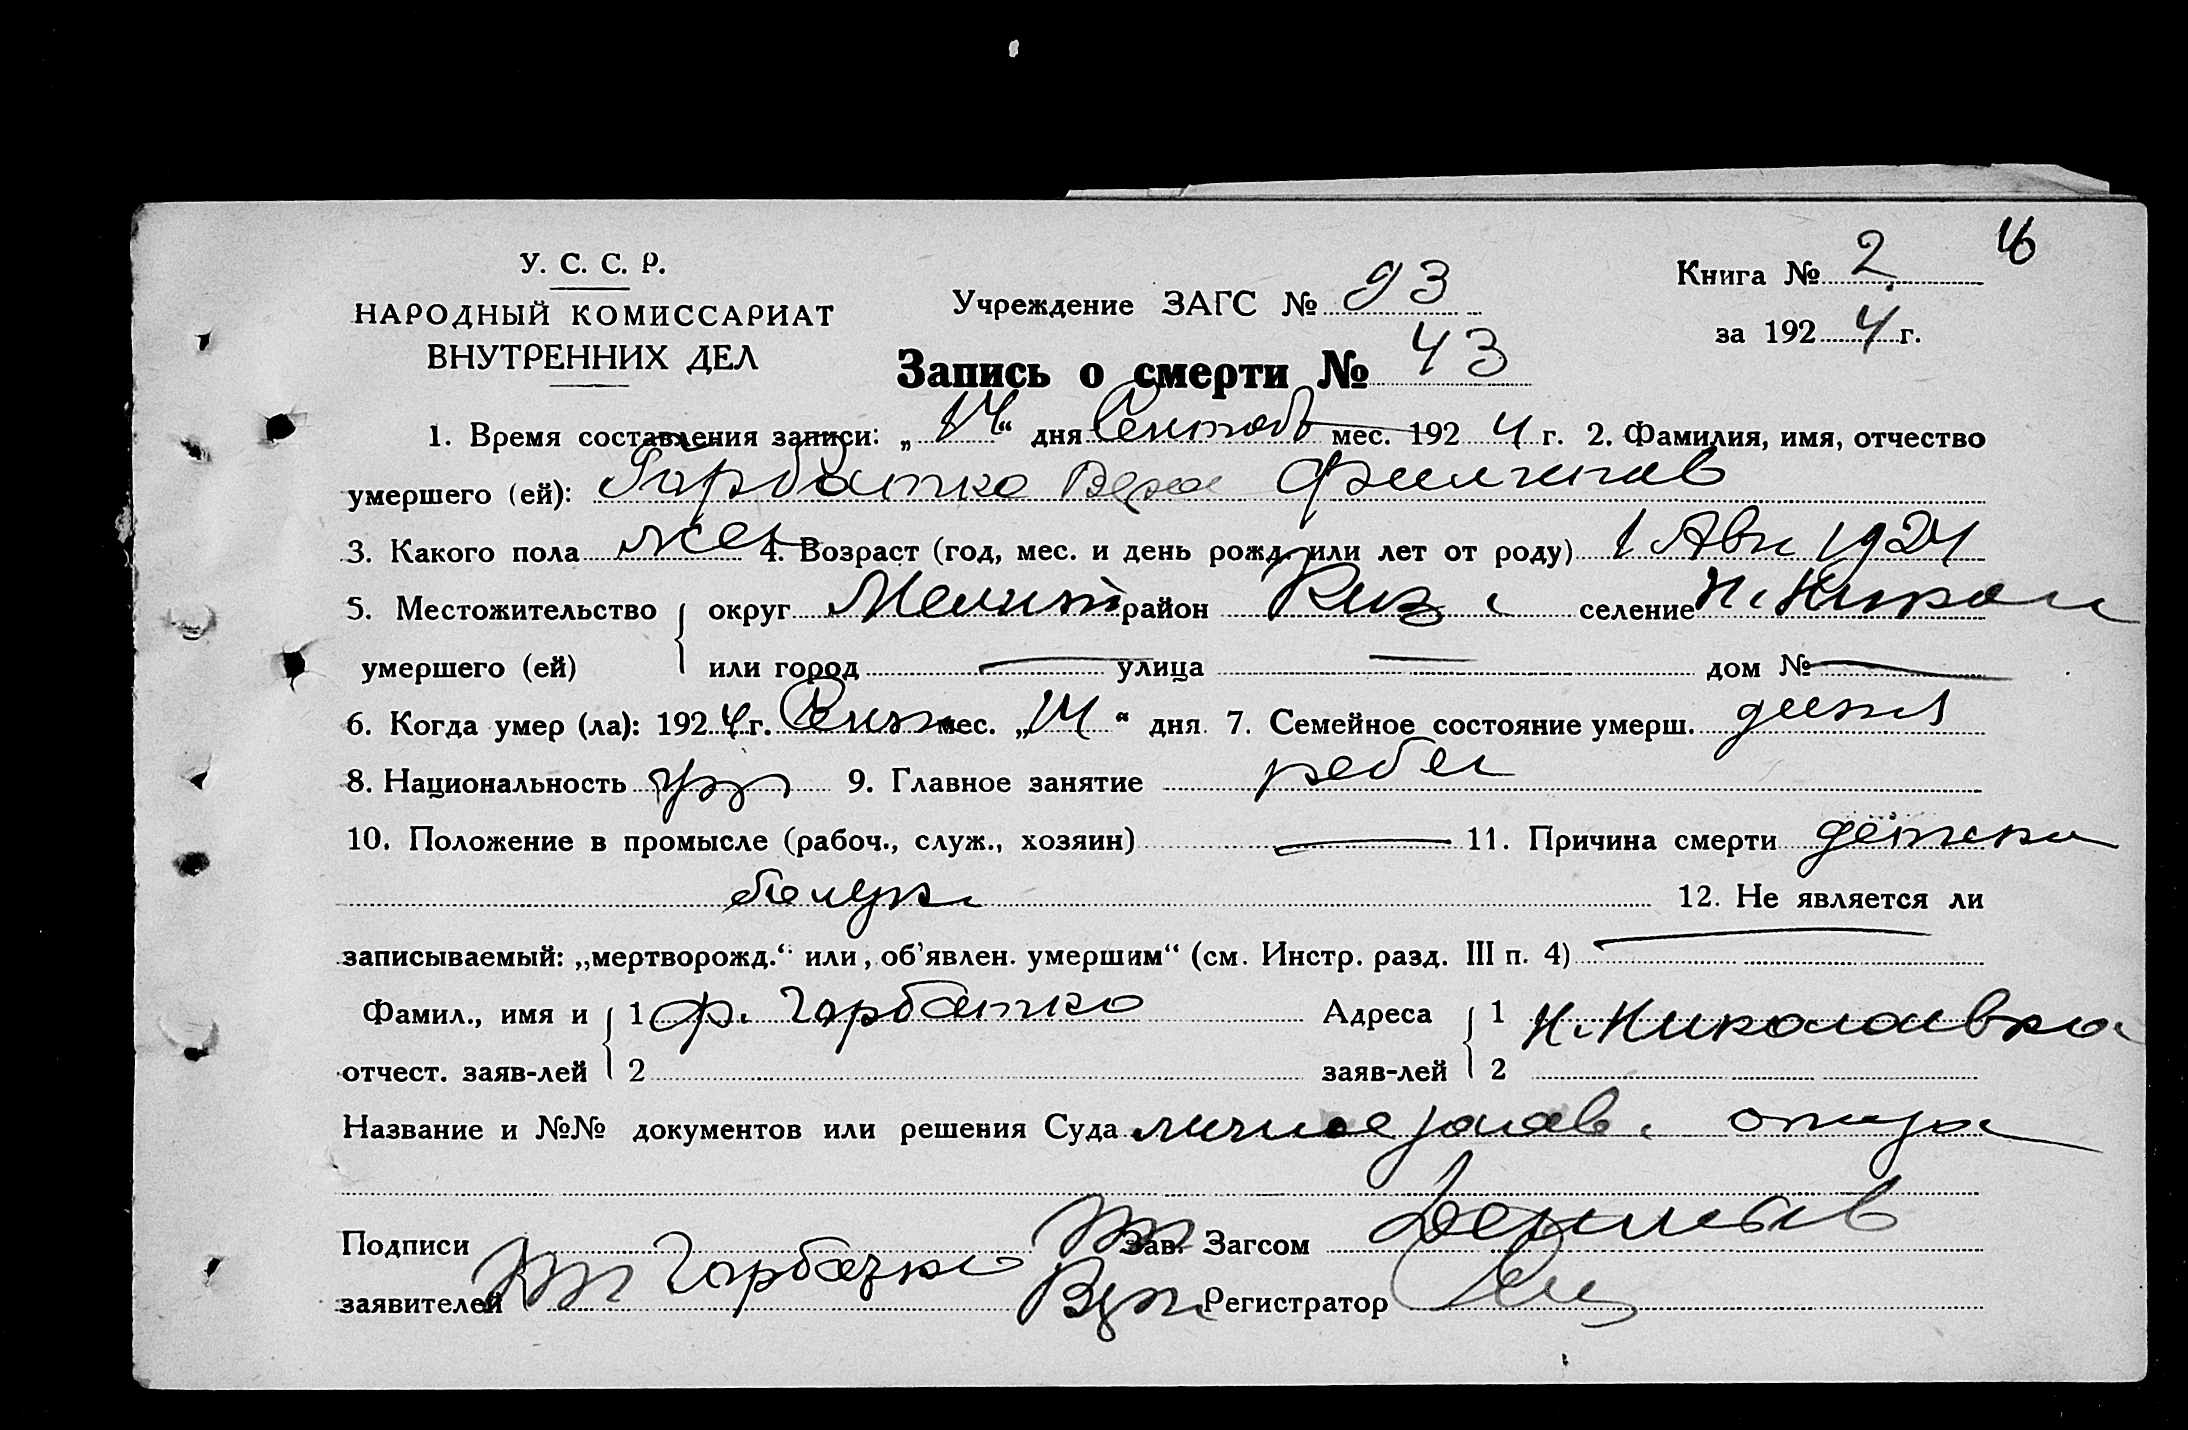 У. С. С. Р.
НАРОДНЫЙ КОМИССАРИАТ
ВНУТРЕННИХ ДЕЛ
Учреждение ЗАГС № 93
Книга № 2
за 1924 г.
Запись о смерти № 43
1. Время составления записи: „14“ дня Сентяб мес. 1924 г. 2. Фамилия, имя, отчество
умершего (ей): Горбатко Вера
3. Какого пола жен 4. Возраст (год, мес. и день рожд. или лет от роду) 1 Авг 1924
5. Местожительство округ Мелит район селение Н. Никол
умершего (ей) или город — улица — дом № —
6. Когда умер (ла): 1924 г. Сент мес. „14“ дня. 7. Семейное состояние умерш. дитя
8. Национальность укр 9. Главное занятие ребен
10. Положение в промысле (рабоч., служ., хозяин) — 11. Причина смерти детская
12. Не является ли
записываемый: „мертворожд.“ или „об'явлен. умершим“ (см. Инстр. разд. III п. 4) —
Фамил., имя и 1 Ф. Горбатко Адреса 1 Н. Николаевка
отчест. заяв-лей 2 заяв-лей 2
Название и №№ документов или решения Суда личное заяв. отца
Подписи Зав. Загсом
заявителей Горбатко Регистратор